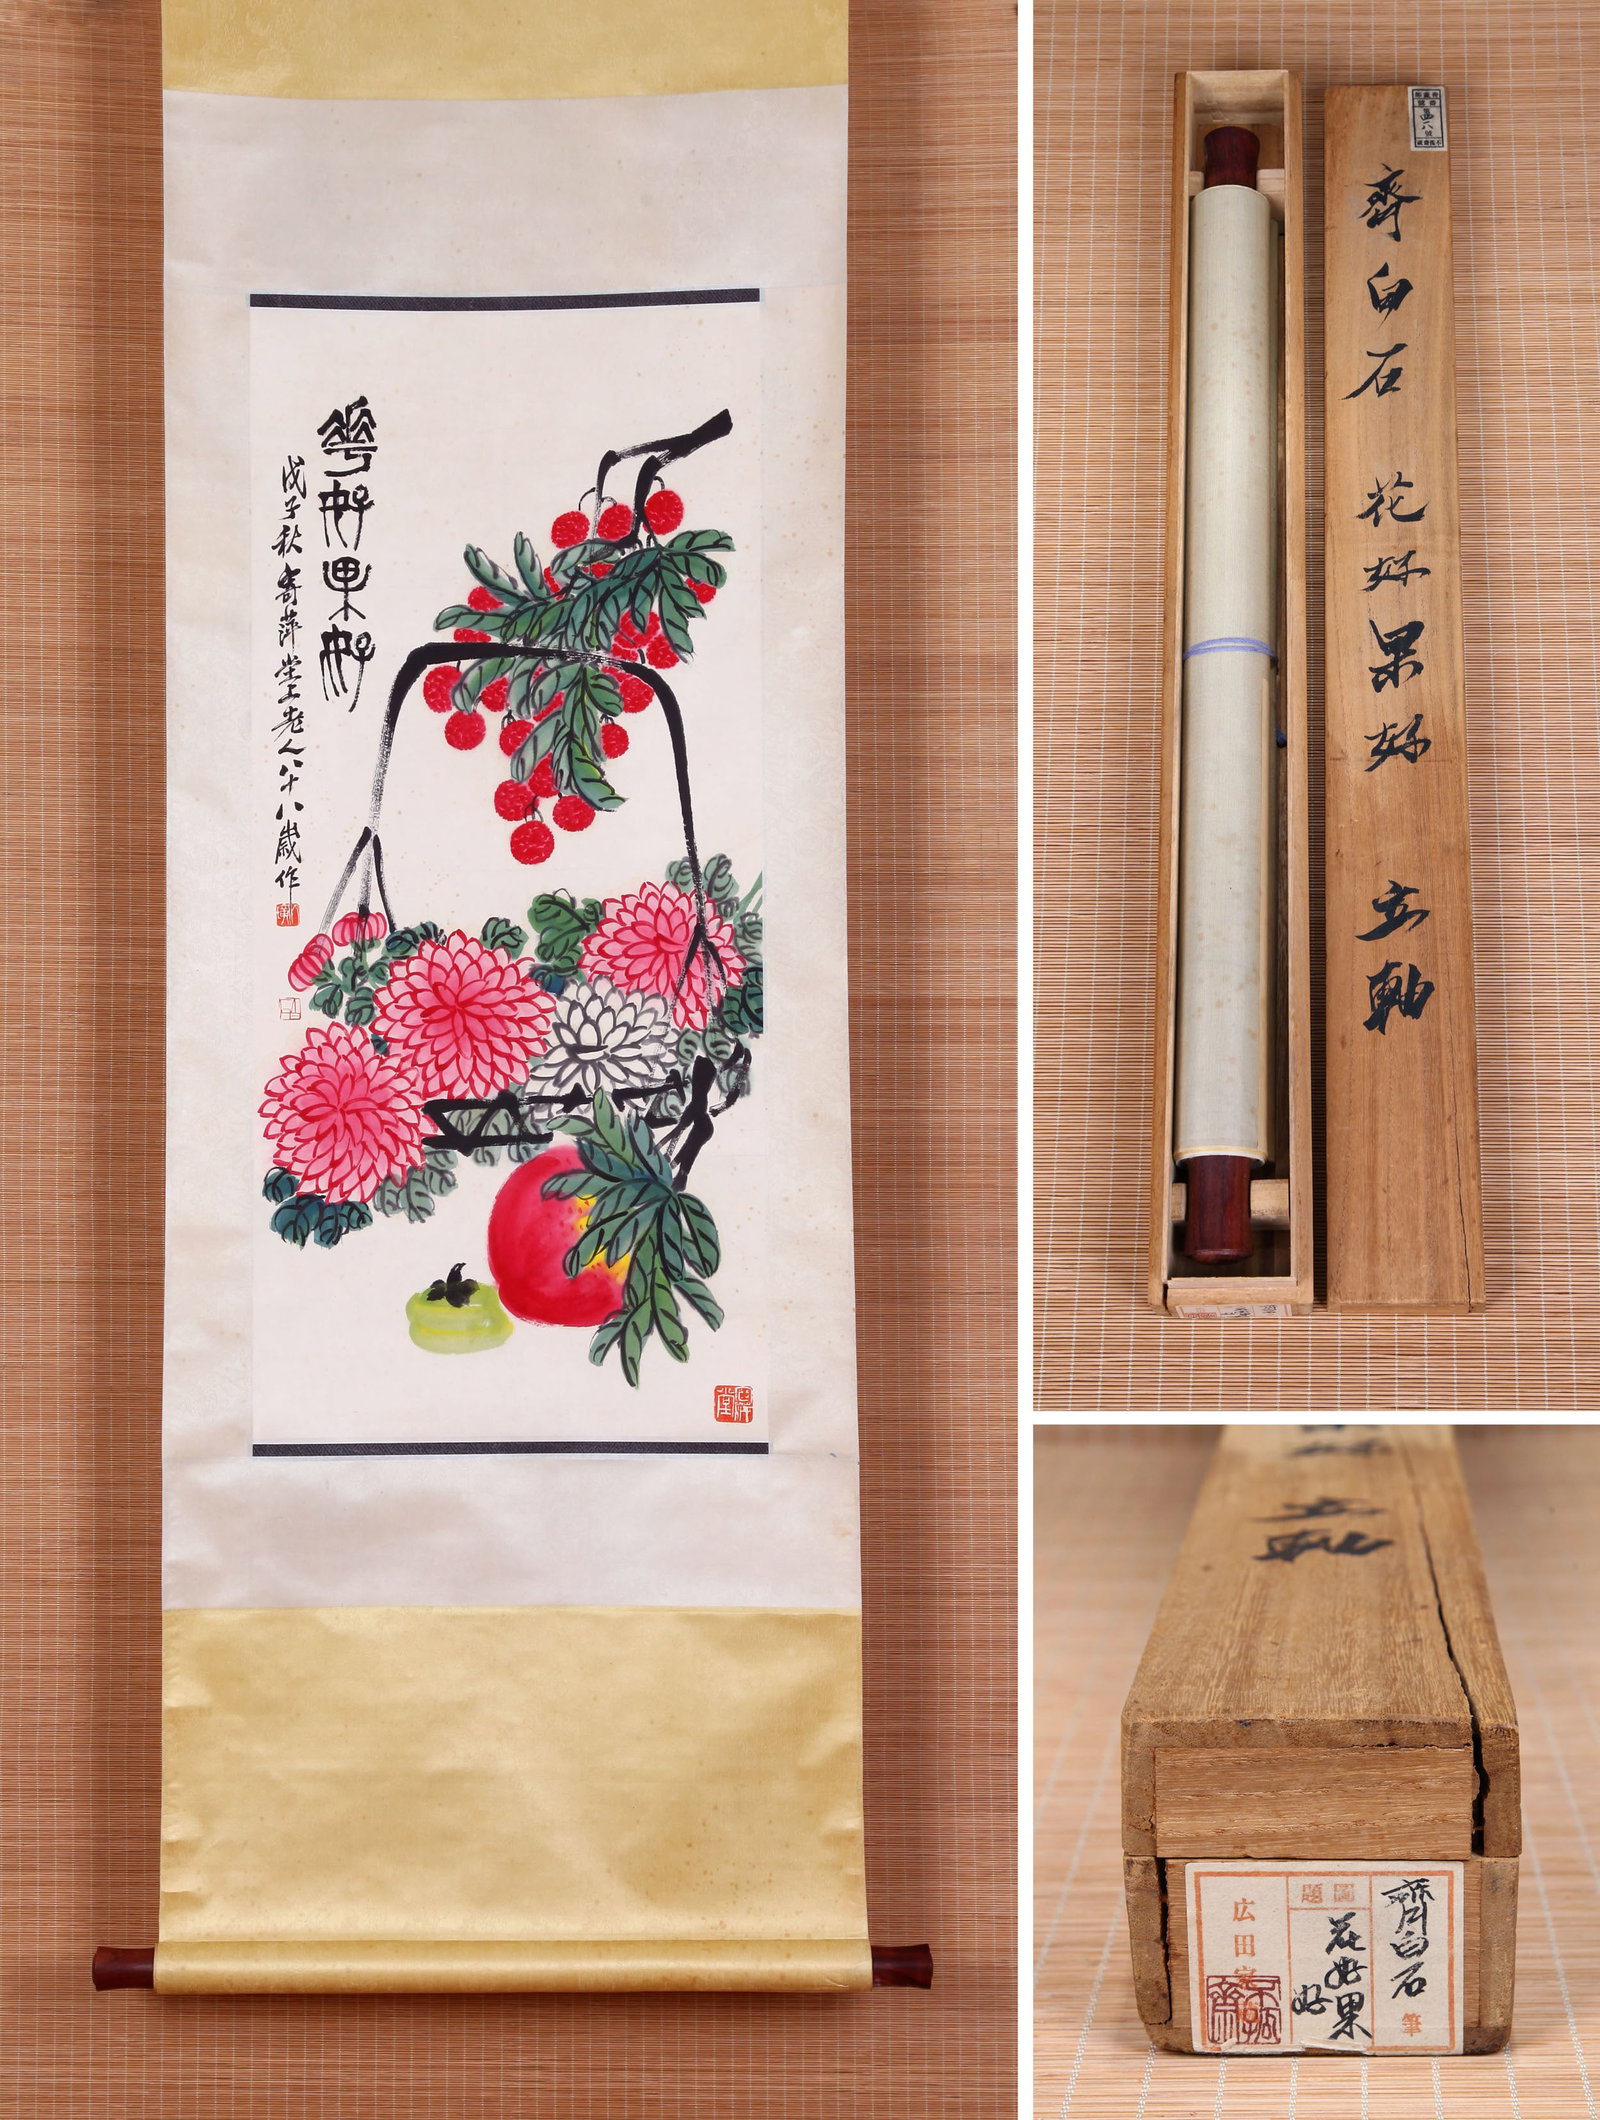 華好果好
戊子秋寄萍堂上老人八十八歲作
齊白石 花好果好 立軸
立軸
齊白石 筆
圖題
花好果好
広田家